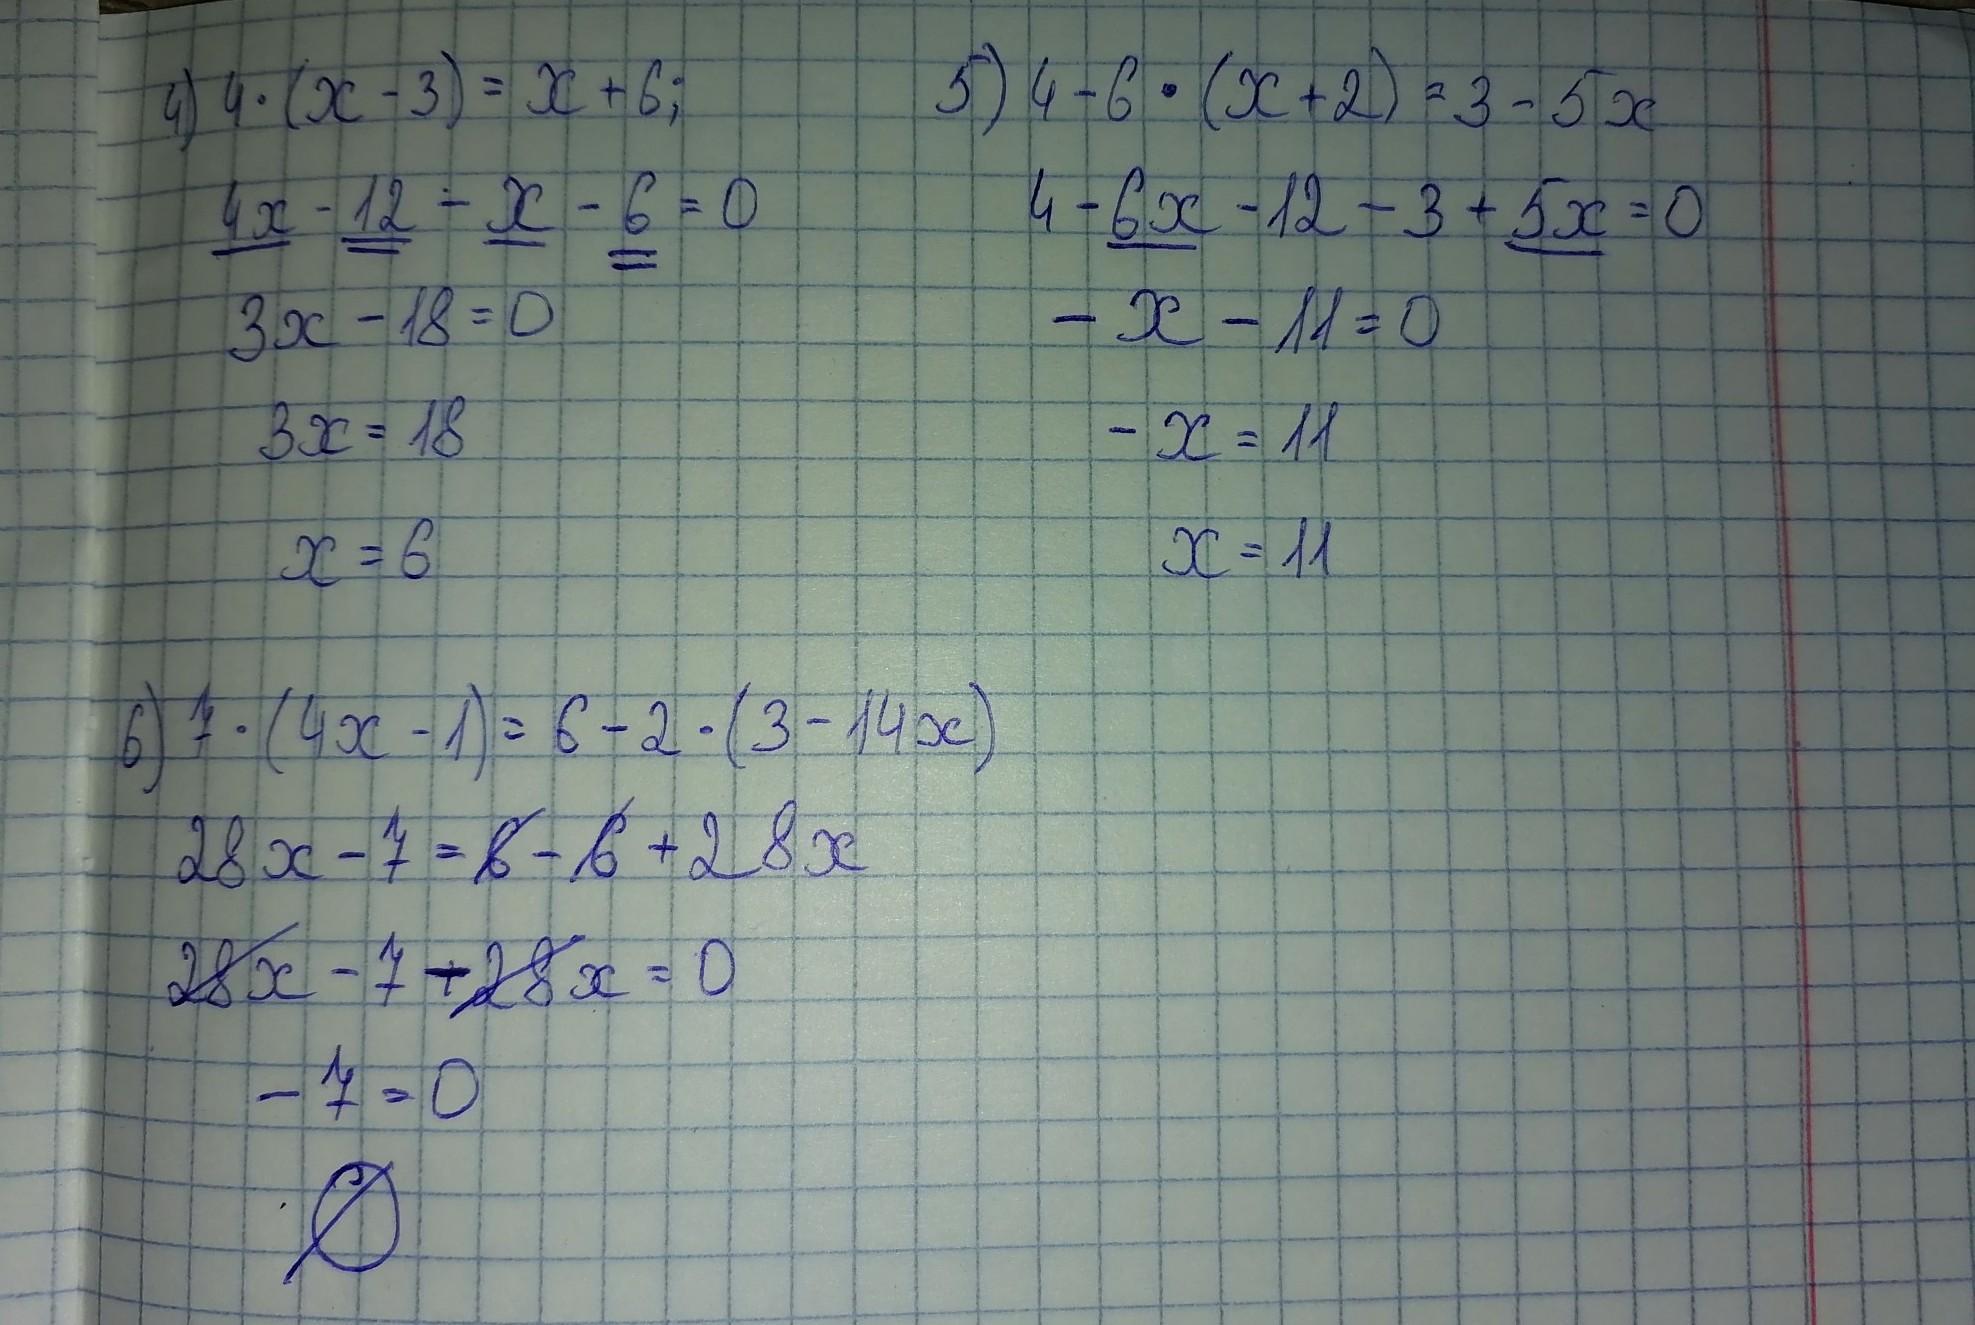 4) 4·(x-3)=x+6;
4x-12-x-6=0
3x-18=0
3x=18
x=6
5) 4-6·(x+2)=3-5x
4-6x-12-3+5x=0
-x-11=0
-x=11
x=11
6) 7·(4x-1)=6-2·(3-14x)
28x-7=6-6+28x
28x-7-28x=0
-7=0
∅